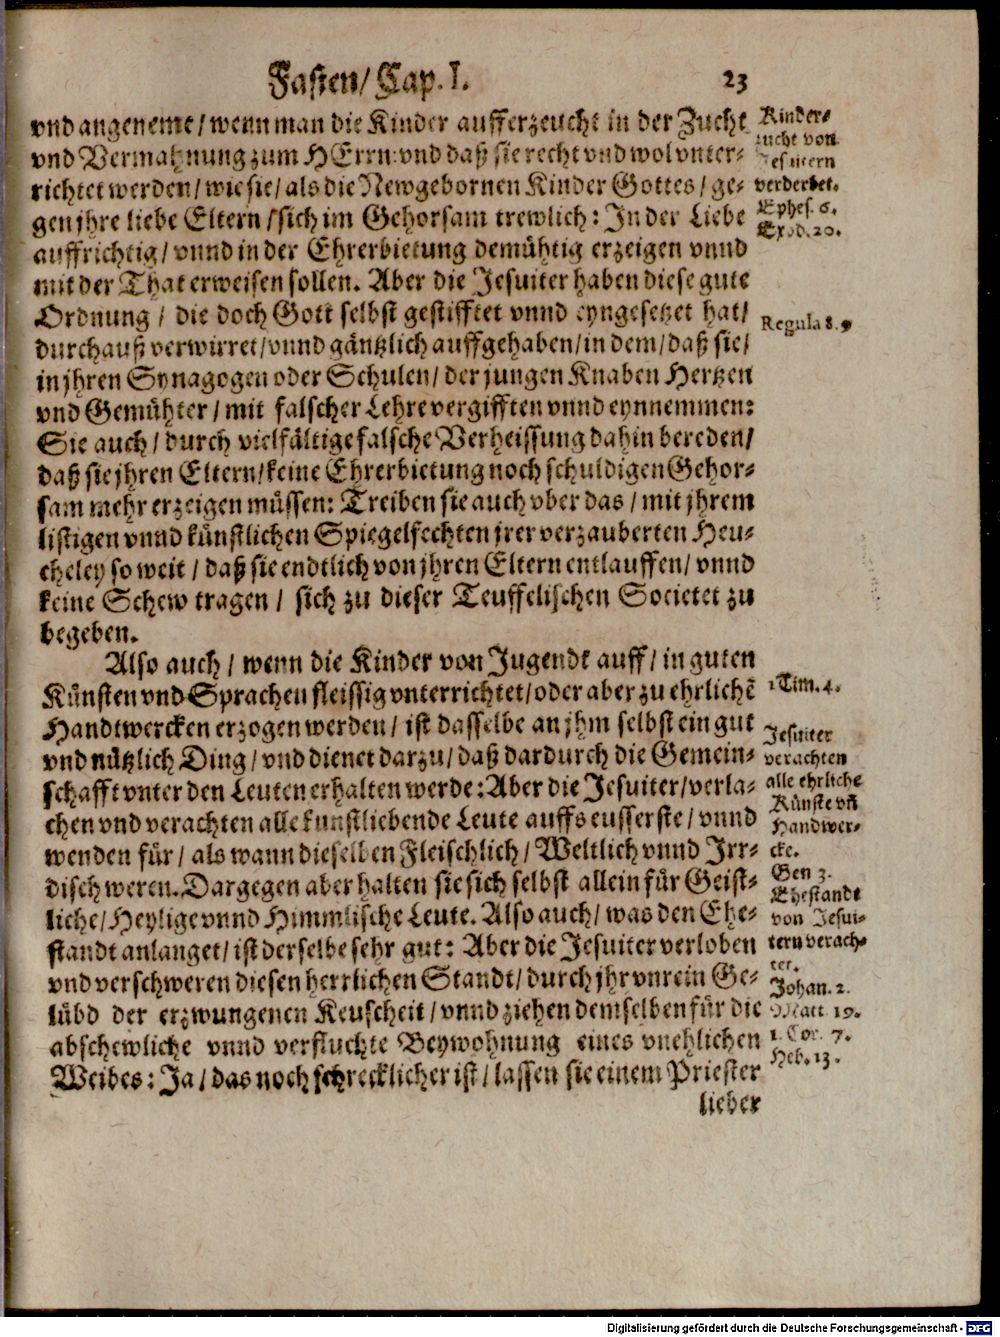 Fasten/ Cap. I. 23
vnd angeneme/ wenn man die Kinder aufferzeucht in der Zucht
vnd Vermahnung zum HErrn: vnd daß sie recht vnd wol vnter-
richtet werden/ wie sie/ als die Newgebornen Kinder Gottes/ ge-
gen jhre liebe Eltern/ sich im Gehorsam trewlich: In der Liebe
auffrichtig/ vnnd in der Ehrerbietung demühtig erzeigen vnnd
mit der That erweisen sollen. Aber die Jesuiter haben diese gute
Ordnung/ die doch Gott selbst gestifftet vnnd eyngesetzet hat/
durchauß verwirret/ vnnd gäntzlich auffgehaben/ in dem/ daß sie/
in jhren Synagogen oder Schulen/ der jungen Knaben Hertzen
vnd Gemühter/ mit falscher Lehre vergifften vnnd eynnemmen:
Sie auch/ durch vielfältige falsche Verheissung dahin bereden/
daß sie jhren Eltern/ keine Ehrerbietung noch schuldigen Gehor-
sam mehr erzeigen müssen: Treiben sie auch vber das/ mit jhrem
listigen vnnd künstlichen Spiegelfechten jrer verzauberten Heu-
cheley so weit/ daß sie endtlich von jhren Eltern entlauffen/ vnnd
keine Schew tragen/ sich zu dieser Teuffelischen Societet zu
begeben.
Also auch/ wenn die Kinder von Jugendt auff/ in guten
Künsten vnd Sprachen fleissig vnterrichtet/ oder aber zu ehrlichē
Handtwercken erzogen werden/ ist dasselbe an jhm selbst ein gut
vnd nützlich Ding/ vnd dienet darzu/ daß dardurch die Gemein-
schafft vnter den Leuten erhalten werde: Aber die Jesuiter/ verla-
chen vnd verachten alle kunstliebende Leute auffs eusserste/ vnnd
wenden für/ als wann dieselben Fleischlich/ Weltlich vnnd Irr-
disch weren. Dargegen aber halten sie sich selbst allein für Geist-
liche/ Heylige vnnd Himmlische Leute. Also auch/ was den Ehe-
standt anlanget/ ist derselbe sehr gut: Aber die Jesuiter verloben
vnd verschweren diesen herrlichen Standt/ durch jhr vnrein Ge-
lübd der erzwungenen Keuscheit/ vnnd ziehen demselben für die
abschewliche vnnd verfluchte Beywohnung eines vnehlichen
Weibes: Ja/ das noch schrecklicher ist/ lassen sie einem Priester
lieber
Kinder-
zucht von
Jesuitern
verderbet.
Ephes. 6.
Exod. 20.
Regula 8. 9
1 Tim. 4.
Jesuiter
verachten
alle ehrliche
Künste vñ
Handwer-
cke.
Gen 3.
Ehestandt
von Jesui-
tern verach-
tet.
Johan. 2.
Matt. 19.
1. Cor. 7.
Heb. 13.
Digitalisierung gefördert durch die Deutsche Forschungsgemeinschaft - DFG